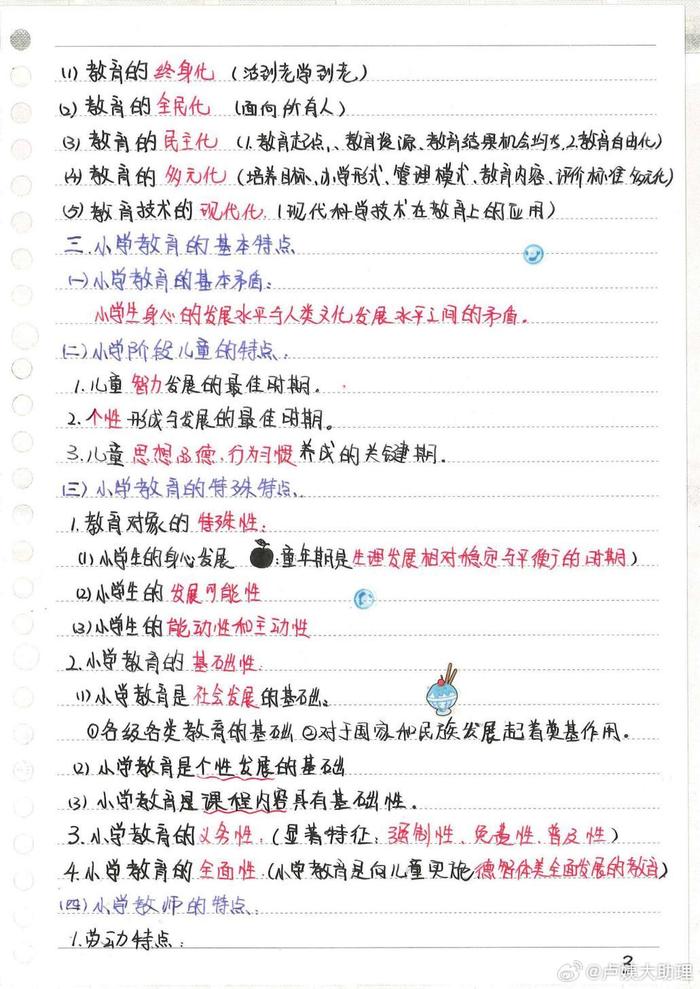 (1) 教育的终身化 (活到老学到老)
(2) 教育的全民化 (面向所有人)
(3) 教育的民主化 (1.教育起点、教育资源、教育结果机会均等,2.教育自由化)
(4) 教育的多元化 (培养目标、办学形式、管理模式、教育内容、评价标准多元化)
(5) 教育技术的现代化 (现代科学技术在教育上的应用)
三.小学教育的基本特点
(一)小学教育的基本矛盾:
小学生身心的发展水平与人类文化发展水平之间的矛盾。
(二)小学阶段儿童的特点:
1.儿童智力发展的最佳时期。
2.个性形成与发展的最佳时期。
3.儿童思想品德,行为习惯养成的关键期。
(三)小学教育的特殊特点
1.教育对象的特殊性:
(1)小学生的身心发展 :童年期是生理发展相对稳定与平衡的时期)
(2)小学生的发展可能性
(3)小学生的能动性和主动性
2.小学教育的基础性:
(1)小学教育是社会发展的基础。
①各级各类教育的基础 ②对于国家和民族发展起着奠基作用。
(2) 小学教育是个性发展的基础
(3) 小学教育是课程内容具有基础性。
3.小学教育的义务性,(显著特征:强制性、免费性、普及性)
4.小学教育的全面性 (小学教育是向儿童实施德智体美全面发展的教育)
(四)小学教师的特点:
1.劳动特点:
2
@卢姨大助理